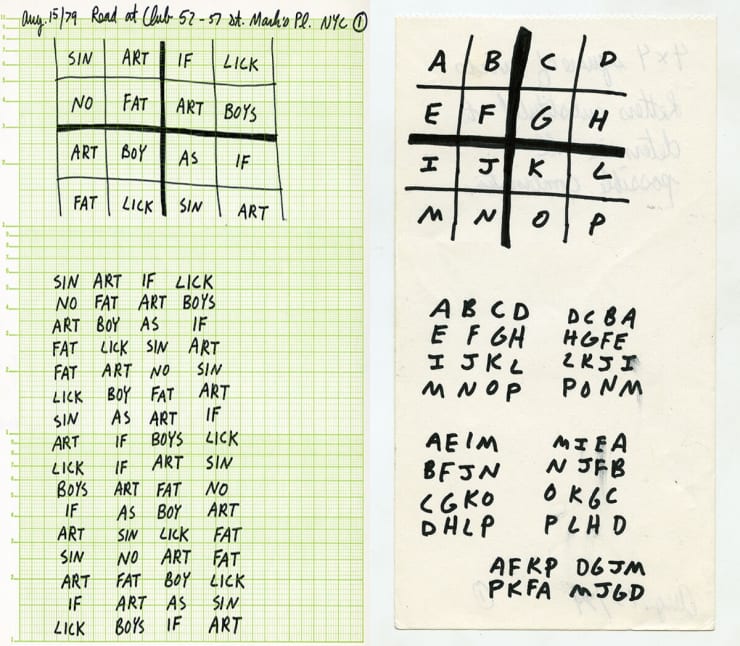 Aug. 15/79 Read at Club 52 - 57 St. Mark's Pl. NYC ①
SIN ART IF LICK
NO FAT ART BOYS
ART BOY AS IF
FAT LICK SIN ART
SIN ART IF LICK
NO FAT ART BOYS
ART BOY AS IF
FAT LICK SIN ART
FAT ART NO SIN
LICK BOY FAT ART
SIN AS ART IF
ART IF BOYS LICK
LICK IF ART SIN
BOYS ART FAT NO
IF AS BOY ART
ART SIN LICK FAT
SIN NO ART FAT
ART FAT BOY LICK
IF ART AS SIN
LICK BOYS IF ART
A B C D
E F G H
I J K L
M N O P
A B C D DCBA
E F GH HGFE
I JKL LKJI
M N O P PONM
AEIM MIEA
BFJN NJFB
CGKO OKGC
DHLP PLHD
AFKP DGJM
PKFA MJGD